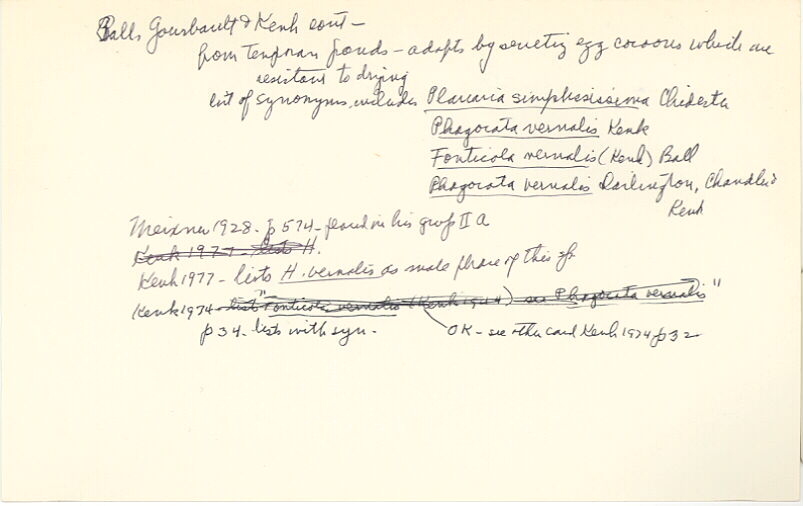 Ball, Gourbault & Kenk cont —
from temporary ponds — adapts by secreting egg cocoons which are
resistant to drying
list of synonyms includes Planaria simplissisima Chidester
Phagocata vernalis Kenk
Fonticola vernalis (Kenk) Ball
Phagocata vernalis Darlington, Chandler
Kenk
Meixner 1928 - p 574 - placed in his group II a
Kenk 1977 - lists H.
Kenk 1977 - lists H. vernalis as male phase of this sp
Kenk 1974 - lists "Fonticola vernalis (Kenk 1944) see Phagocata vernalis"
p 34 - lists with syn.
OK - see other card Kenk 1974 p 32